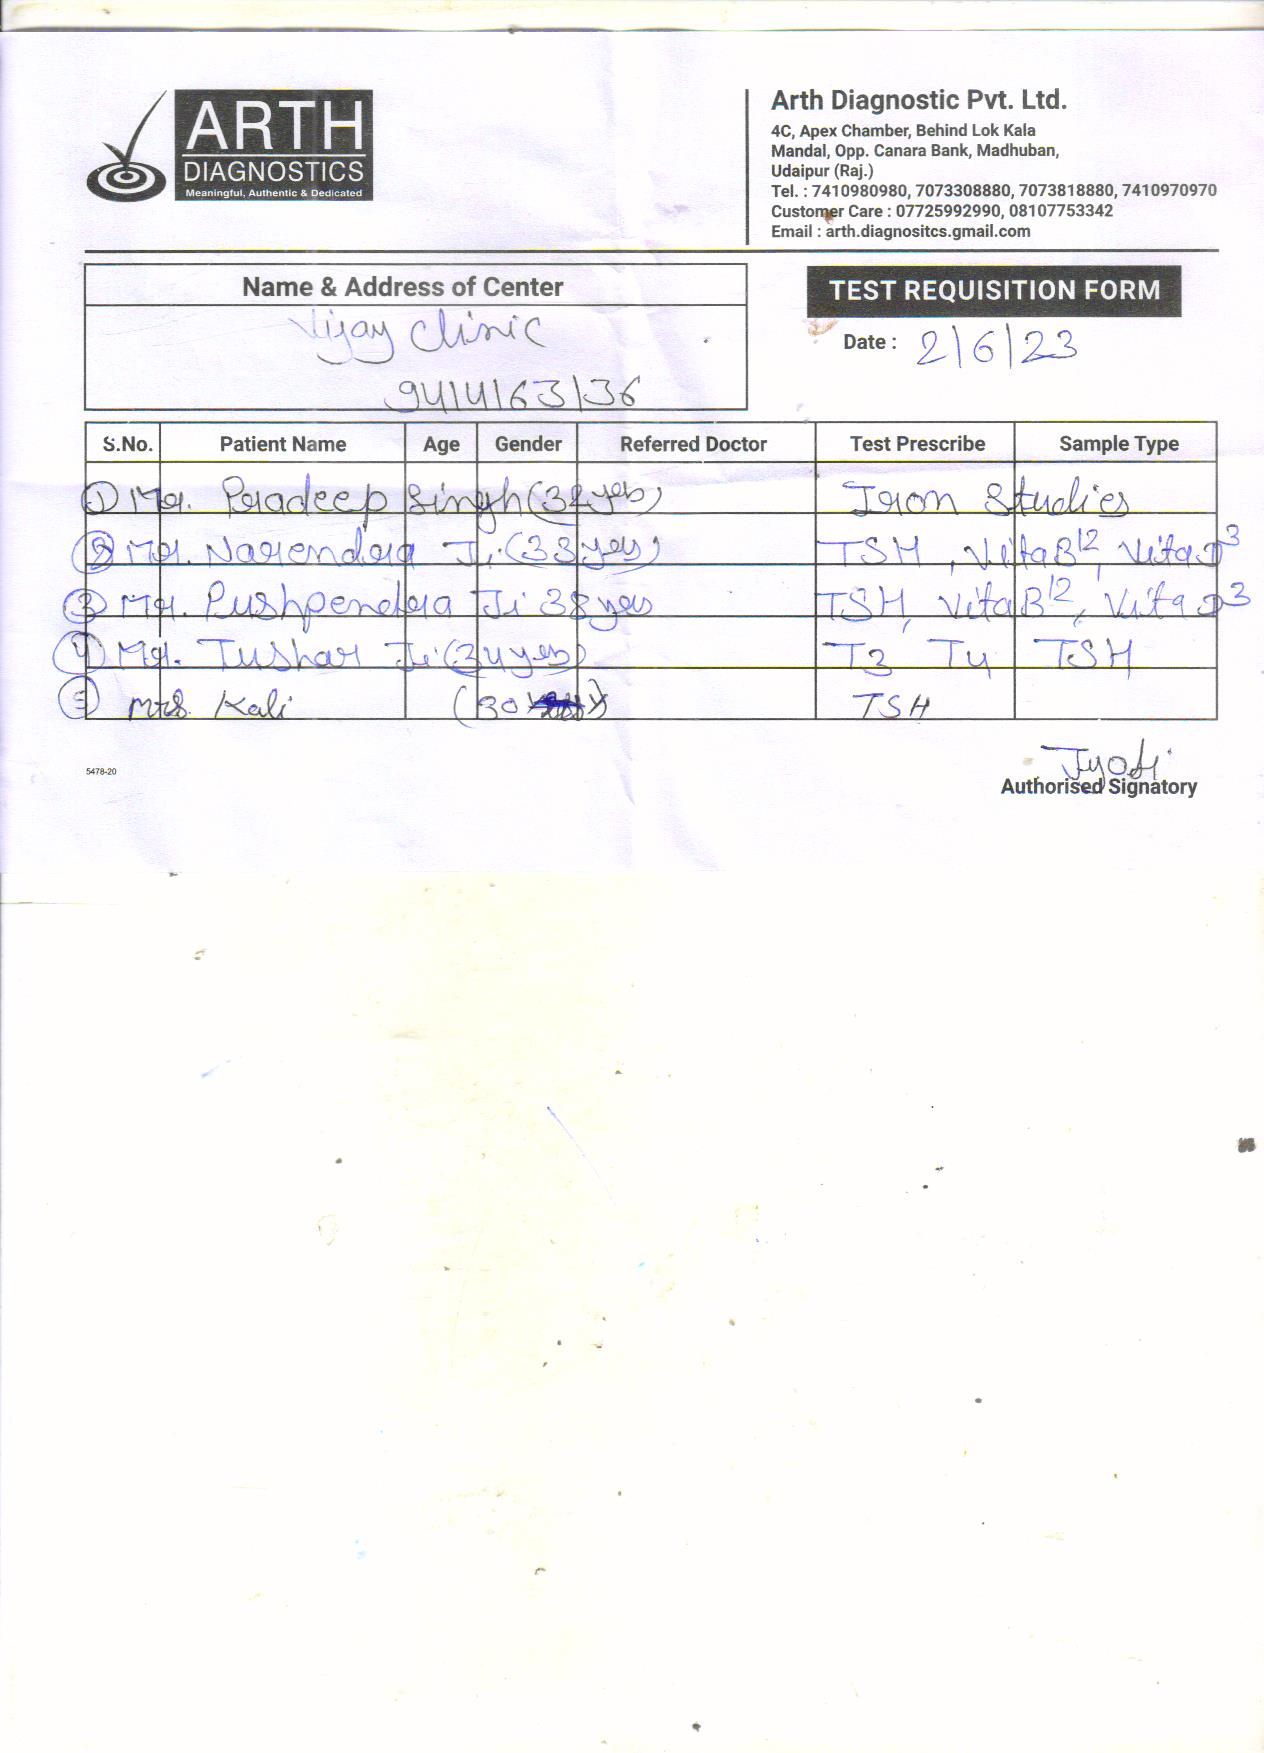 ARTH
DIAGNOSTICS
Meaningful, Authentic & Dedicated
Arth Diagnostic Pvt. Ltd.
4C, Apex Chamber, Behind Lok Kala
Mandal, Opp. Canara Bank, Madhuban,
Udaipur (Raj.)
Tel. : 7410980980, 7073308880, 7073818880, 7410970970
Customer Care : 07725992990, 08107753342
Email : arth.diagnositcs.gmail.com
Name & Address of Center
Vijay Clinic
9414163136
TEST REQUISITION FORM
Date : 2/6/23
S.No. Patient Name Age Gender Referred Doctor Test Prescribe Sample Type
1 Mr. Pradeep Singh (32 yrs) Iron Studies
2 Mr. Narendra Ji (33 yrs) TSH, Vita B12, Vita D3
3 Mr. Pushpendra Ji 38 yrs TSH, Vita B12, Vita D3
4 Mr. Tushar Ji (34 yrs) T3 T4 TSH
5 Mrs. Kali (30 ) TSH
5478-20
Jyoti
Authorised Signatory